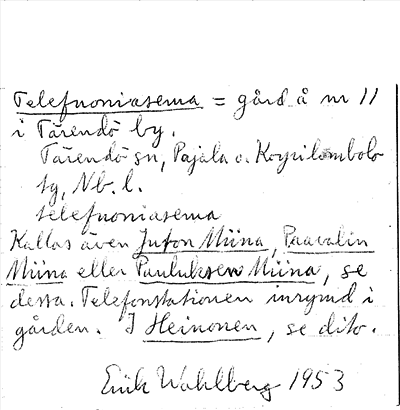 Telefuoniasema = gård å nr 11
i Tärendö by.
Tärendö sn, Pajala o. Korpilombolo
tg, Nb. l.
telefuoniasema
Kallas även Juton Miina, Paavalin
Miina eller Pauluksen Miina, se
dessa. Telefonstationen inrymd i
gården. I Heinonen, se dito.
Erik Wahlberg 1953